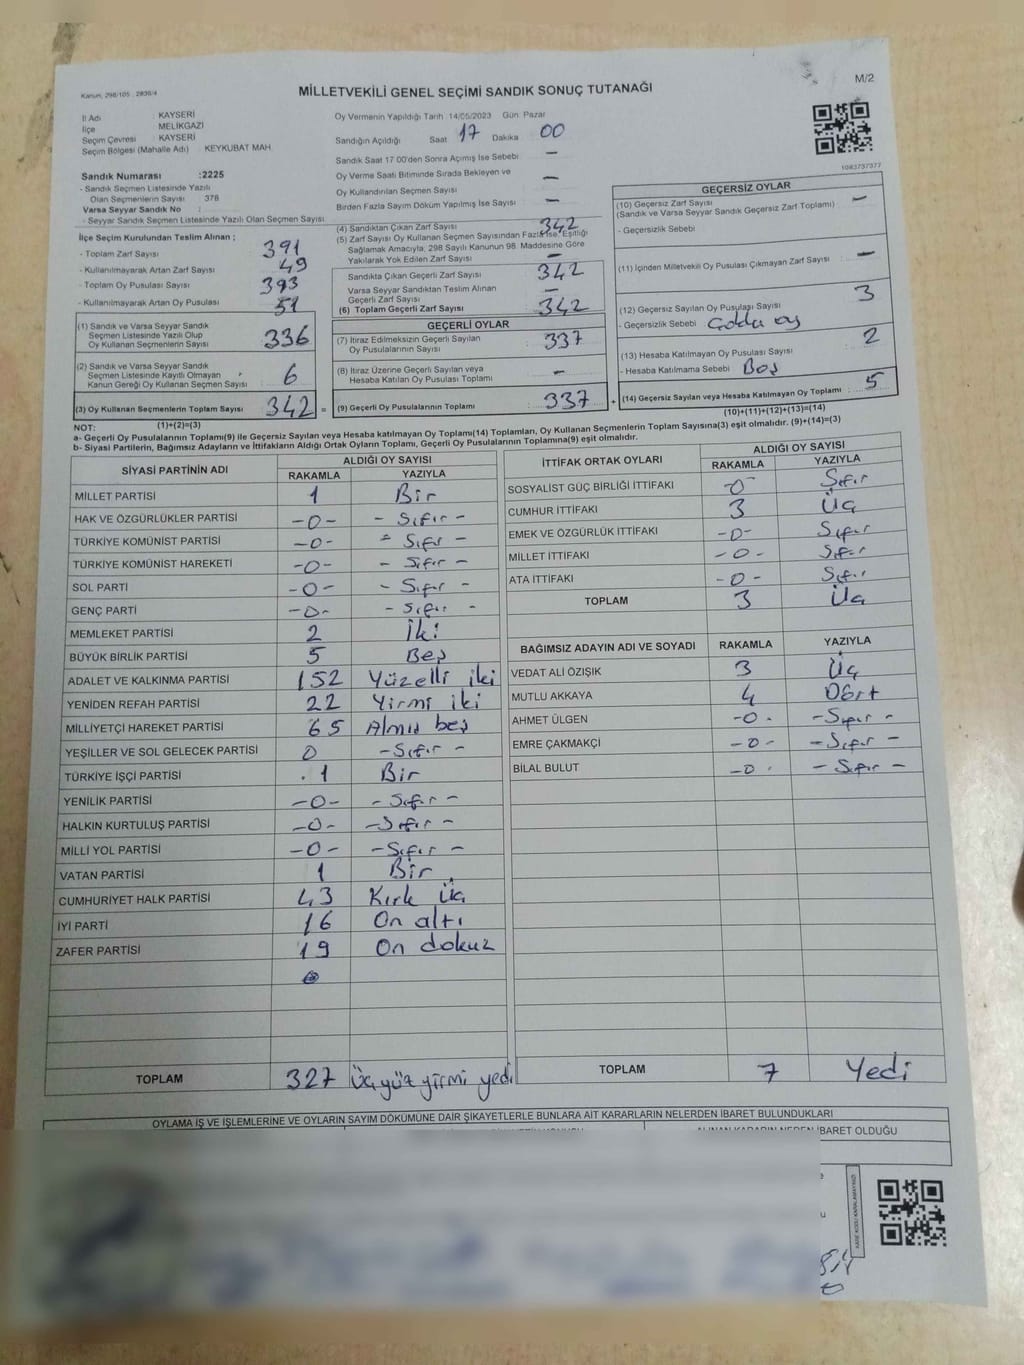 Kanun, 298/105 . 2839/4
MİLLETVEKİLİ GENEL SEÇİMİ SANDIK SONUÇ TUTANAĞI
M/2
İl Adı : KAYSERİ
İlçe : MELİKGAZİ
Seçim Çevresi : KAYSERİ
Seçim Bölgesi (Mahalle Adı) : KEYKUBAT MAH.
Sandık Numarası :2225
- Sandık Seçmen Listesinde Yazılı
Olan Seçmenlerin Sayısı : 378
Varsa Seyyar Sandık No :
- Seyyar Sandık Seçmen Listesinde Yazılı Olan Seçmen Sayısı
Oy Vermenin Yapıldığı Tarih 14/05/2023 Gün: Pazar
Sandığın Açıldığı Saat 17 Dakika 00
Sandık Saat 17:00'den Sonra Açmış İse Sebebi : —
Oy Verme Saati Bitiminde Sırada Bekleyen ve
Oy Kullandırılan Seçmen Sayısı : —
Birden Fazla Sayım Döküm Yapılmış İse Sayısı : —
1083737377
İlçe Seçim Kurulundan Teslim Alınan ;
- Toplam Zarf Sayısı : 391
- Kullanılmayarak Artan Zarf Sayısı : 49
- Toplam Oy Pusulası Sayısı : 393
- Kullanılmayarak Artan Oy Pusulası : 51
(1) Sandık ve Varsa Seyyar Sandık
Seçmen Listesinde Yazılı Olup
Oy Kullanan Seçmenlerin Sayısı : 336
(2) Sandık ve Varsa Seyyar Sandık
Seçmen Listesinde Kayıtlı Olmayan
Kanun Gereği Oy Kullanan Seçmen Sayısı : 6
(3) Oy Kullanan Seçmenlerin Toplam Sayısı : 342 =
(4) Sandıktan Çıkan Zarf Sayısı : 342
(5) Zarf Sayısı Oy Kullanan Seçmen Sayısından Fazla İse, Eşitliği
Sağlamak Amacıyla, 298 Sayılı Kanunun 98. Maddesine Göre
Yakılarak Yok Edilen Zarf Sayısı : —
Sandıkta Çıkan Geçerli Zarf Sayısı : 342
Varsa Seyyar Sandıktan Teslim Alınan
Geçerli Zarf Sayısı : —
(6) Toplam Geçerli Zarf Sayısı : 342
GEÇERLİ OYLAR
(7) İtiraz Edilmeksizin Geçerli Sayılan
Oy Pusulalarının Sayısı : 337
(8) İtiraz Üzerine Geçerli Sayılan veya
Hesaba Katılan Oy Pusulası Toplamı : —
(9) Geçerli Oy Pusulalarının Toplamı : 337 +
GEÇERSİZ OYLAR
(10) Geçersiz Zarf Sayısı : —
(Sandık ve Varsa Seyyar Sandık Geçersiz Zarf Toplamı)
- Geçersizlik Sebebi :
(11) İçinden Milletvekili Oy Pusulası Çıkmayan Zarf Sayısı : —
(12) Geçersiz Sayılan Oy Pusulası Sayısı : 3
- Geçersizlik Sebebi : oy
(13) Hesaba Katılmayan Oy Pusulası Sayısı : 2
- Hesaba Katılmama Sebebi : Boş
(14) Geçersiz Sayılan veya Hesaba Katılmayan Oy Toplamı : 5
NOT: (1)+(2)=(3)
(10)+(11)+(12)+(13)=(14)
a- Geçerli Oy Pusulalarının Toplamı(9) ile Geçersiz Sayılan veya Hesaba katılmayan Oy Toplamı(14) Toplamları, Oy Kullanan Seçmenlerin Toplam Sayısına(3) eşit olmalıdır. (9)+(14)=(3)
b- Siyasi Partilerin, Bağımsız Adayların ve İttifakların Aldığı Ortak Oyların Toplamı, Geçerli Oy Pusulalarının Toplamına(9) eşit olmalıdır.
SİYASİ PARTİNİN ADI
ALDIĞI OY SAYISI
RAKAMLA YAZIYLA
MİLLET PARTİSİ 1 Bir
HAK VE ÖZGÜRLÜKLER PARTİSİ -0- - Sıfır -
TÜRKİYE KOMÜNİST PARTİSİ -0- - Sıfır -
TÜRKİYE KOMÜNİST HAREKETİ -0- - Sıfır -
SOL PARTİ -0- - Sıfır -
GENÇ PARTİ -0- - Sıfır -
MEMLEKET PARTİSİ 2 İki
BÜYÜK BİRLİK PARTİSİ 5 Beş
ADALET VE KALKINMA PARTİSİ 152 Yüzelli iki
YENİDEN REFAH PARTİSİ 22 Yirmi iki
MİLLİYETÇİ HAREKET PARTİSİ 65 Altmış beş
YEŞİLLER VE SOL GELECEK PARTİSİ 0 - Sıfır -
TÜRKİYE İŞÇİ PARTİSİ 1 Bir
YENİLİK PARTİSİ -0- - Sıfır -
HALKIN KURTULUŞ PARTİSİ -0- - Sıfır -
MİLLİ YOL PARTİSİ -0- - Sıfır -
VATAN PARTİSİ 1 Bir
CUMHURİYET HALK PARTİSİ 43 Kırk üç
İYİ PARTİ 16 On altı
ZAFER PARTİSİ 19 On dokuz
TOPLAM 327 Üçyüz yirmi yedi
İTTİFAK ORTAK OYLARI
ALDIĞI OY SAYISI
RAKAMLA YAZIYLA
SOSYALİST GÜÇ BİRLİĞİ İTTİFAKI 0 Sıfır
CUMHUR İTTİFAKI 3 Üç
EMEK VE ÖZGÜRLÜK İTTİFAKI -0- Sıfır
MİLLET İTTİFAKI -0- Sıfır
ATA İTTİFAKI -0- Sıfır
TOPLAM 3 Üç
BAĞIMSIZ ADAYIN ADI VE SOYADI RAKAMLA YAZIYLA
VEDAT ALİ ÖZIŞIK 3 Üç
MUTLU AKKAYA 4 Dört
AHMET ÜLGEN -0- - Sıfır -
EMRE ÇAKMAKÇİ -0- - Sıfır -
BİLAL BULUT -0- - Sıfır -
TOPLAM 7 Yedi
OYLAMA İŞ VE İŞLEMLERİNE VE OYLARIN SAYIM DÖKÜMÜNE DAİR ŞİKAYETLERLE BUNLARA AİT KARARLARIN NELERDEN İBARET BULUNDUKLARI
ALINAN KARARIN NEDEN İBARET OLDUĞU